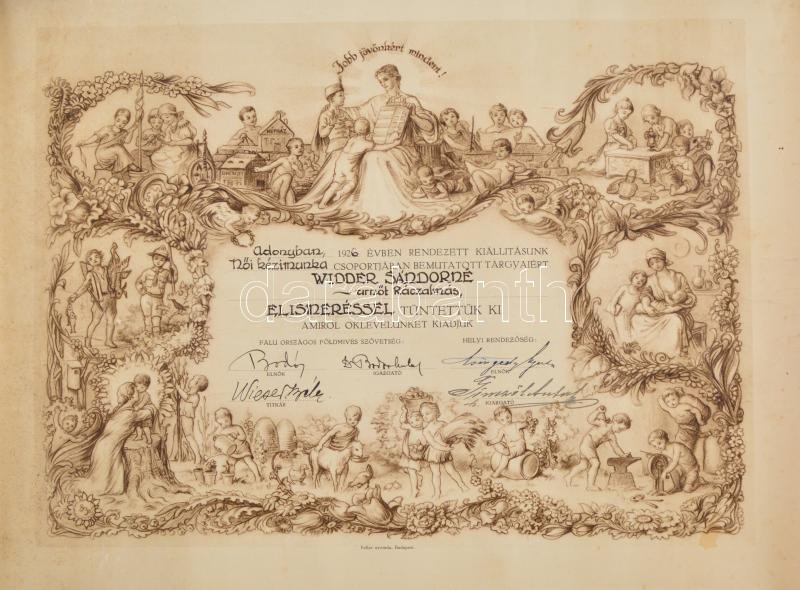 Jobb jövönkért minden!
NÉPHÁZ
Adonyban, 1926 ÉVBEN RENDEZETT KIÁLLITÁSUNK
Női kézimunka CSOPORTJÁBAN BEMUTATOTT TÁRGYAIÉRT
WIDDER SÁNDORNÉ
úrnőt Ráczalmás,
ELISMERÉSSEL TÜNTETTÜK KI
AMIRŐL OKLEVELÜNKET KIADJUK
FALU ORSZÁGOS FÖLDMIVES SZÖVETSÉG:
HELYI RENDEZŐSÉG:
ELNÖK
IGAZGATÓ
ELNÖK
TITKÁR
IGAZGATÓ
Feller nyomda, Budapest.
darabanth